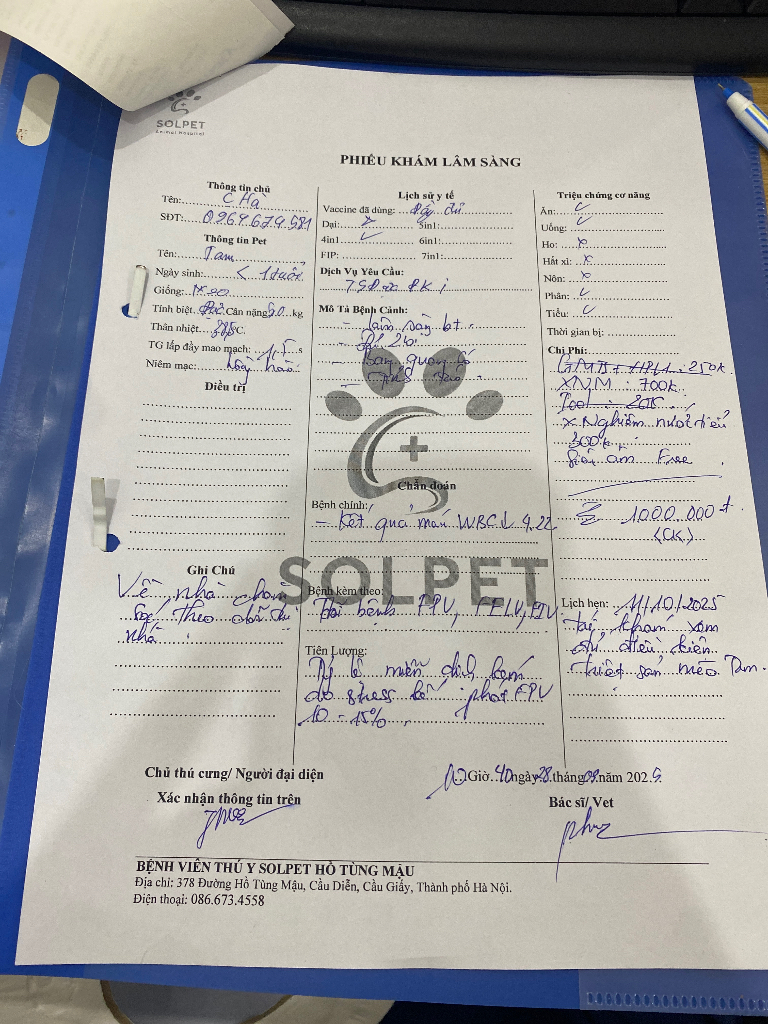 SOLPET
Animal Hospital
PHIẾU KHÁM LÂM SÀNG
Thông tin chủ
Tên: C Hà
SĐT: 0969.679.581
Thông tin Pet
Tên: Tam
Ngày sinh: < 1 tuổi
Giống:
Tính biệt. Cân nặng kg
Thân nhiệt °C.
TG lấp đầy mao mạch: 1.5 s
Niêm mạc: hồng hào
Điều trị
Ghi Chú
Về nhà chăm
sóc theo
nhà
Lịch sử y tế
Vaccine đã dùng: đầy đủ
Dại: x 5in1:
4in1 ✓ 6in1:
FIP: 7in1:
Dịch Vụ Yêu Cầu:
Mô Tả Bệnh Cảnh:
- Lâm sàng bt.
Chẩn đoán
Bệnh chính:
- Kết quả máu WBC↓ 4.22
Bệnh kèm theo:
bệnh FPV, FELV, FIV
Tiên Lượng:
Tỷ lệ miễn dịch kém
do stress phát FPV
10 - 15%.
Triệu chứng cơ năng
Ăn: ✓
Uống: ✓
Ho: x
Hắt xì: x
Nôn: x
Phân: ✓
Tiểu: ✓
Thời gian bị:
Chi Phí:
250k
XNM : 700k
x Nghiệm nước tiểu
300k
Siêu âm Free
1.000.000 đ
(CK)
Lịch hẹn: 11/10/2025
tái khám xem
đủ điều kiện
triệt sản mèo Tam.
SOLPET
Chủ thú cưng/ Người đại diện
Xác nhận thông tin trên
Giờ 40 ngày 28 tháng 09 năm 2025
Bác sĩ/ Vet
BỆNH VIÊN THÚ Y SOLPET HỒ TÙNG MẬU
Địa chỉ: 378 Đường Hồ Tùng Mậu, Cầu Diễn, Cầu Giấy, Thành phố Hà Nội.
Điện thoại: 086.673.4558